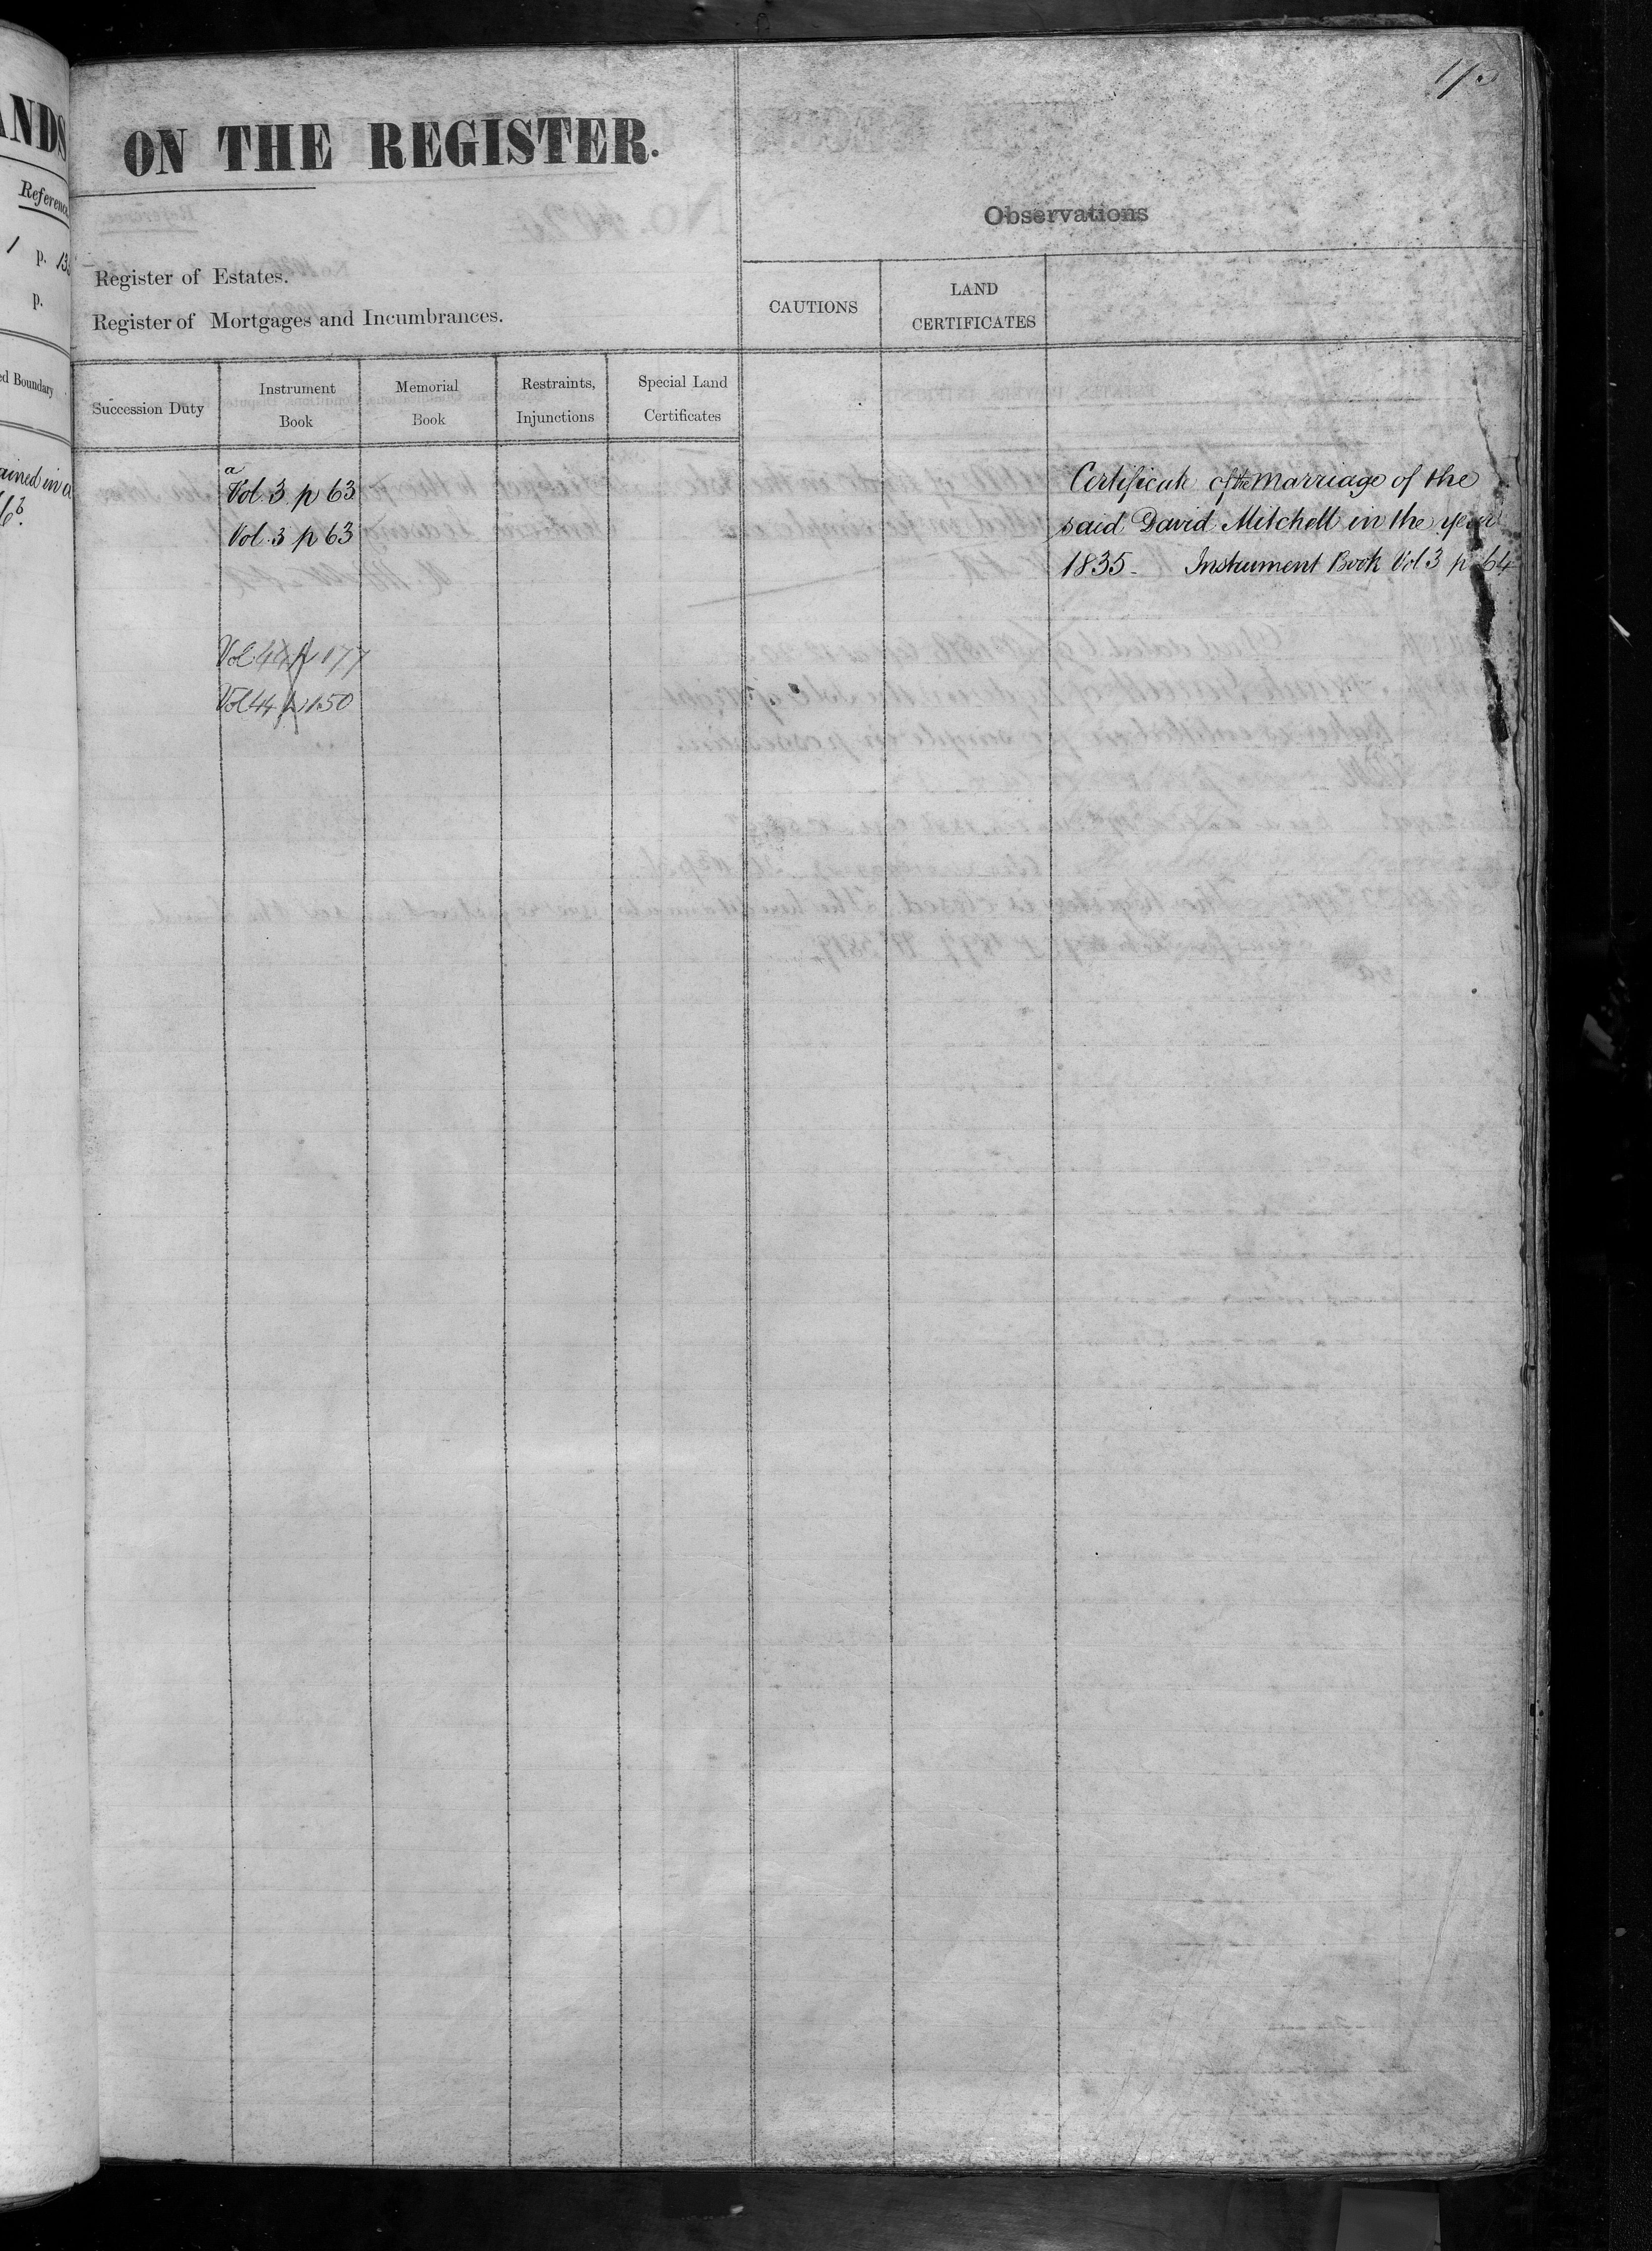 ANDS
Reference
1 p. 13
p.
ed Boundary
ained in a
ON THE REGISTER.
Register of Estates.
Register of Mortgages and Incumbrances.
Observations
CAUTIONS
LAND
CERTIFICATES
Succession Duty
Instrument
Book
Memorial
Book
Restraints,
Injunctions
Special Land
Certificates
a
Vol. 3 p 63
Vol. 3 p 63
Vol 44 p 177
Vol 44 p 150
Certificate of the Marriage of the
said David Mitchell in the year
1835 - Instrument Book Vol 3 p 64